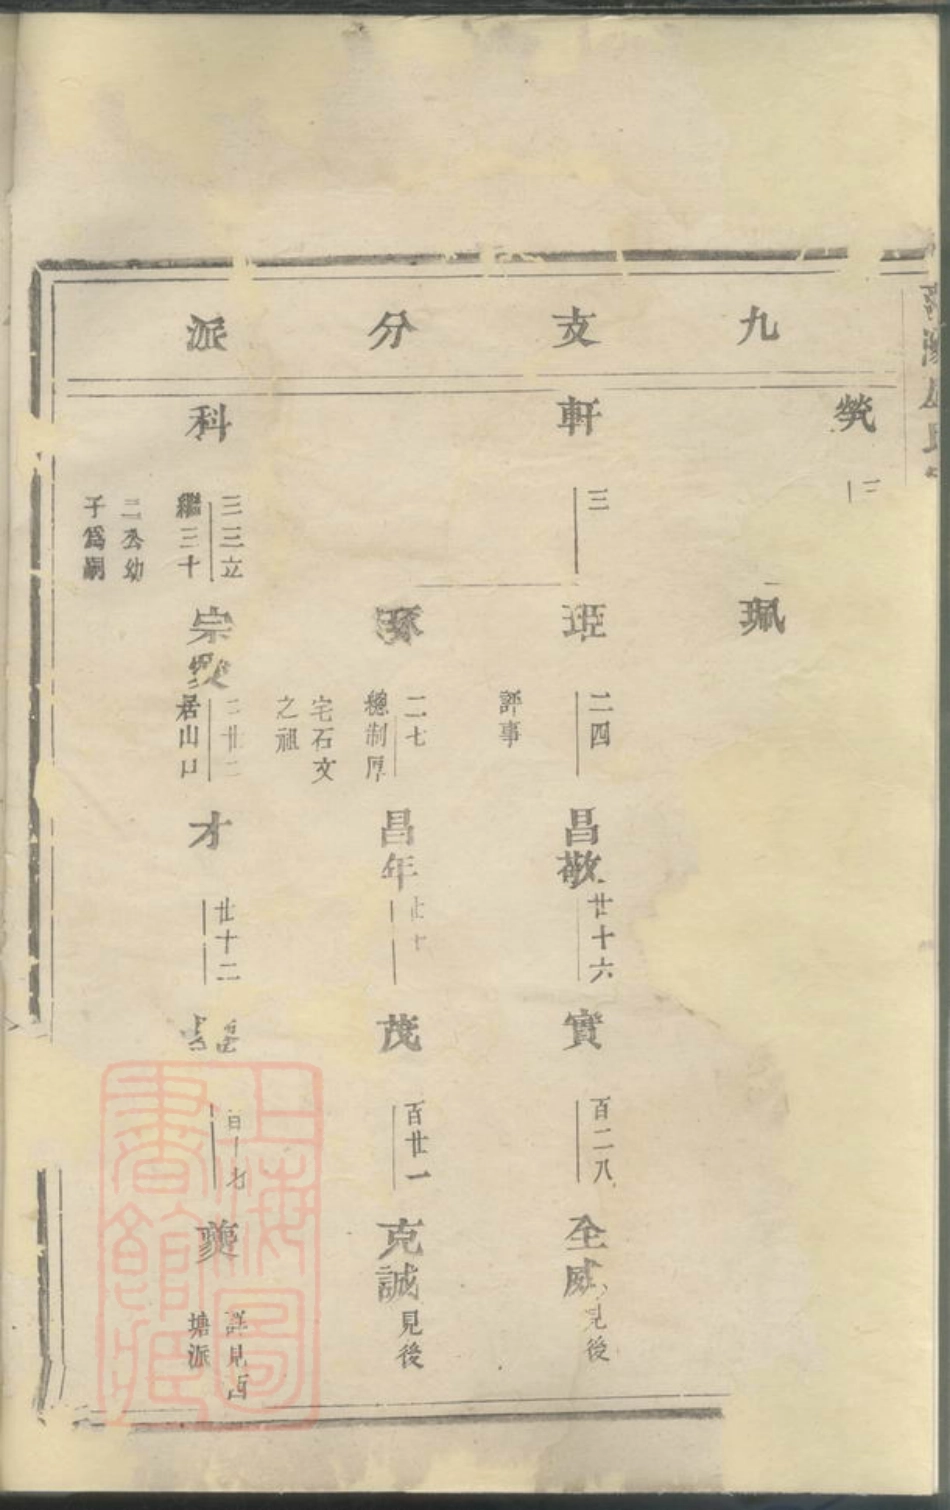 九支分派
煢
三
珮
軒
三
琢
二七
總制厚
宅石文
之祖
昌年
廿十
茂
百廿一
克誠
見後
二四
評事
昌敬
廿十六
實
百二八
全威
見後
科
三三立
繼三十
二公幼
子爲嗣
宗
居山口
才
廿十二
夔
詳見西
塘派
上海圖
書館藏